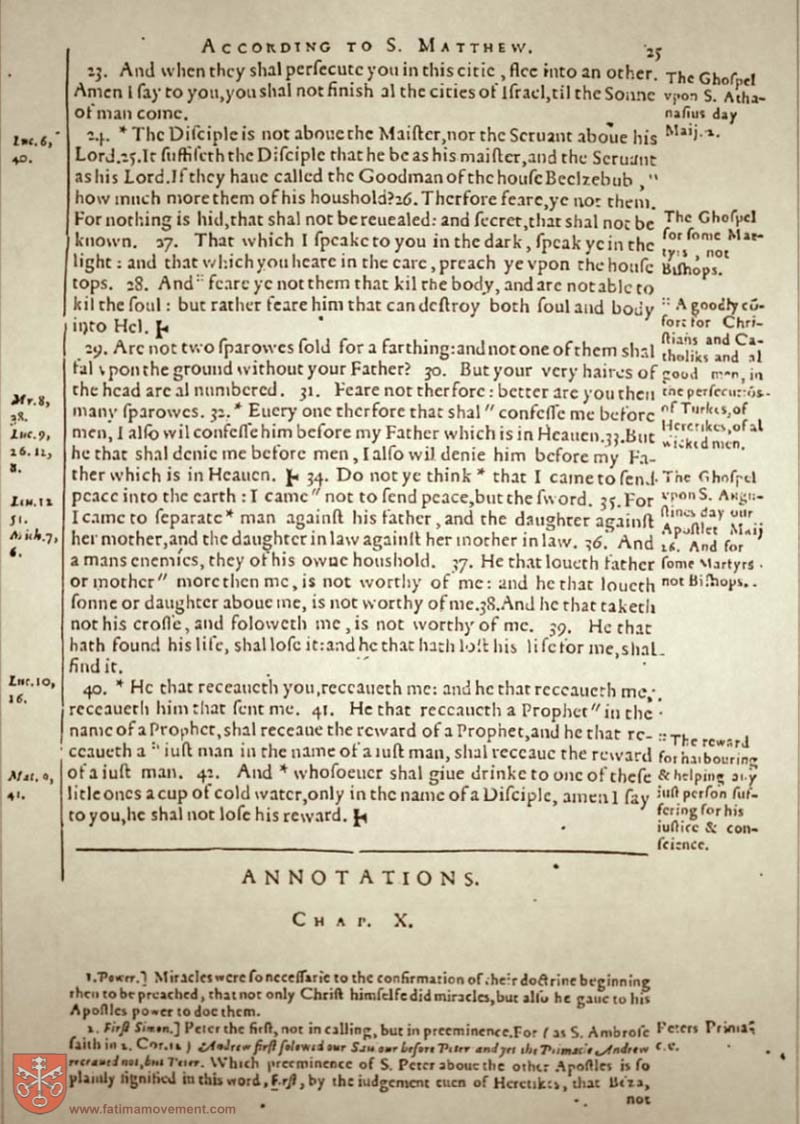 ACCORDING TO S. MATTHEW. 25
23. And when they shal perſecute you in this citie, flee into an other.
Amen I ſay to you, you shal not finish al the cities of Iſrael, til the Sonne
of man come.
24. * The Diſciple is not aboue the Maiſter, nor the Seruant aboue his
Lord. 25. It ſuffiſeth the Diſciple that he be as his maiſter, and the Seruant
as his Lord. If they haue called the Goodman of the houſe Beelzebub, "
how much more them of his houshold? 26. Therfore feare, ye not them.
For nothing is hid, that shal not be reuealed: and ſecret, that shal not be
known. 27. That which I ſpeake to you in the dark, ſpeak ye in the
light: and that which you heare in the eare, preach ye vpon the houſe
tops. 28. And :: feare ye not them that kil the body, and are not able to
kil the ſoul: but rather feare him that can deſtroy both ſoul and body
into Hel.
29. Are not two ſparowes ſold for a farthing: and not one of them shal
fal vpon the ground without your Father? 30. But your very haires of
the head are al numbered. 31. Feare not therfore: better are you then
many ſparowes. 32. * Euery one therfore that shal " confeſſe me before
men, I alſo wil confeſſe him before my Father which is in Heauen. 33. But
he that shal denie me before men, I alſo wil denie him before my Fa-
ther which is in Heauen. 34. Do not ye think * that I came to ſend
peace into the earth: I came " not to ſend peace, but the ſword. 35. For
I came to ſeparate * man againſt his father, and the daughter againſt
her mother, and the daughter in law againſt her mother in law. 36. And
a mans enemies, they of his owne houshold. 37. He that loueth father
or mother " more then me, is not worthy of me: and he that loueth
ſonne or daughter aboue me, is not worthy of me. 38. And he that taketh
not his croſſe, and foloweth me, is not worthy of me. 39. He that
hath found his life, shal loſe it: and he that hath loſt his life for me, shal
find it.
40. * He that receaueth you, receaueth me: and he that receaueth me,
receaueth him that ſent me. 41. He that receaueth a Prophet " in the
name of a Prophet, shal receaue the reward of a Prophet, and he that re-
ceaueth a :: iuſt man in the name of a iuſt man, shal receaue the reward
of a iuſt man. 42. And * whoſoeuer shal giue drinke to one of theſe
litle ones a cup of cold water, only in the name of a Diſciple, amen I ſay
to you, he shal not loſe his reward.
Luc. 6,
40.
Mr. 8,
38.
Luc. 9,
26. 12,
8.
Luc. 12
51.
Mich. 7,
6.
Luc. 10,
16.
Mar. 9,
41.
The Ghoſpel
vpon S. Atha-
naſius day
Maij. 2.
The Ghoſpel
for ſome Mar-
tyrs, not
Biſhops.
:: A goodly cō-
fort for Chri-
ſtians and Ca-
tholiks and al
good men, in
the perſecutiōs
of Turkes, of
Heretikes, of al
wicked men.
The Ghoſpel
vpon S. Augu-
ſtines day our
Apoſtle, Maij
26. And for
ſome Martyrs
not Biſhops.
:: The reward
for harbouring
& helping any
iuſt perſon ſuf-
fering for his
iuſtice & con-
ſcience.
ANNOTATIONS.
CHAP. X.
1. Power.] Miracles were ſo neceſſarie to the confirmation of their doctrine beginning
then to be preached, that not only Chriſt himſelfe did miracles, but alſo he gaue to his
Apoſtles power to doe them.
2. Firſt Simon.] Peter the firſt, not in calling, but in preeminence. For (as S. Ambroſe
ſaith in 2. Cor. 12) Andrew firſt folowed our Sauiour before Peter and yet the Primacie Andrew
receaued not, but Peter. Which preeminence of S. Peter aboue the other Apoſtles is ſo
plainly ſignified in this word, Firſt, by the iudgement euen of Heretikes, that Beza,
not
Peters Prima-
c.e.
www.fatimamovement.com